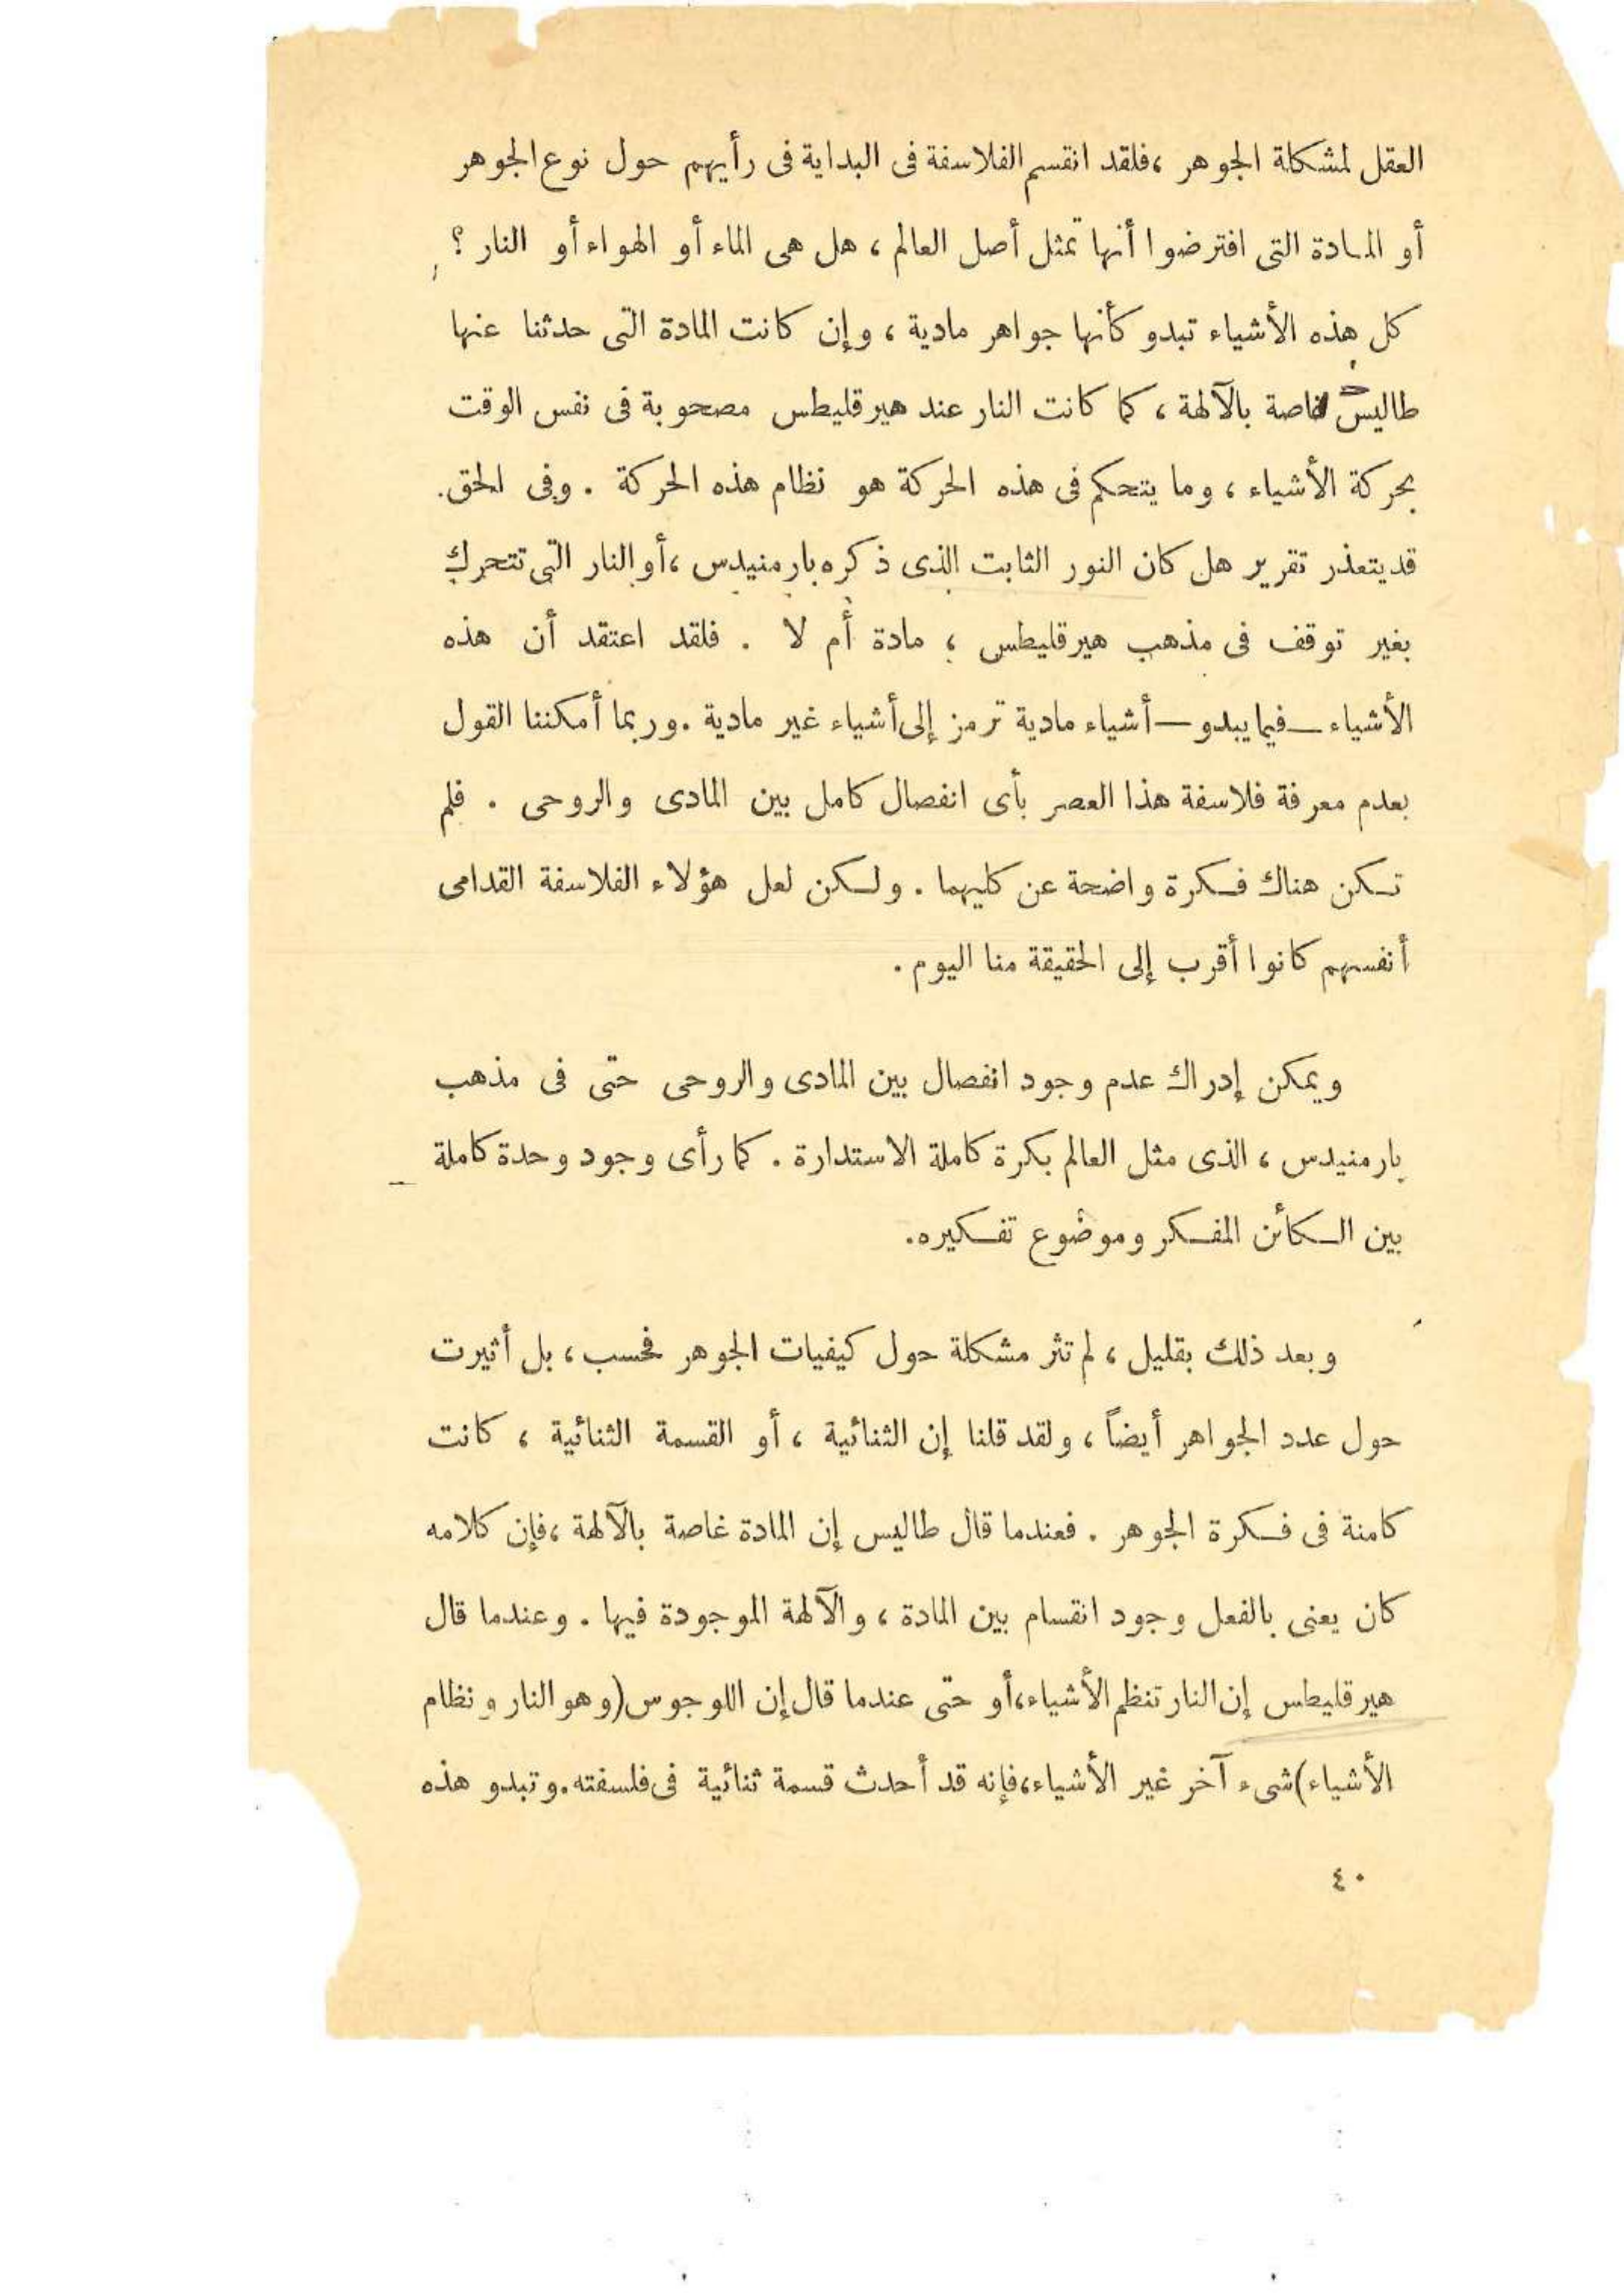 العقل لمشكلة الجوهر ، فلقد انقسم الفلاسفة فى البداية فى رأيهم حول نوع الجوهر
أو المادة التى افترضوا أنها تمثل أصل العالم ، هل هى الماء أو الهواء أو النار ؟
كل هذه الأشياء تبدو كأنها جواهر مادية ، وإن كانت المادة التى حدثنا عنها
طاليس غاصة بالآلهة ، كما كانت النار عند هيرقليطس مصحوبة فى نفس الوقت
بحركة الأشياء ، وما يتحكم فى هذه الحركة هو نظام هذه الحركة . وفى الحق.
قد يتعذر تقرير هل كان النور الثابت الذى ذكره بارمنيدس ، أو النار التى تتحرك
بغير توقف فى مذهب هيرقليطس ، مادة أم لا . فلقد اعتقد أن هذه
الأشياء — فيما يبدو — أشياء مادية ترمز إلى أشياء غير مادية . وربما أمكننا القول
بعدم معرفة فلاسفة هذا العصر بأى انفصال كامل بين المادى والروحى . فلم
تكن هناك فكرة واضحة عن كليهما . ولكن لعل هؤلاء الفلاسفة القدامى
أنفسهم كانوا أقرب إلى الحقيقة منا اليوم .
ويمكن إدراك عدم وجود انفصال بين المادى والروحى حتى فى مذهب
بارمنيدس ، الذى مثل العالم بكرة كاملة الاستدارة . كما رأى وجود وحدة كاملة
بين الكائن المفكر وموضوع تفكيره .
وبعد ذلك بقليل ، لم تثر مشكلة حول كيفيات الجوهر فحسب ، بل أثيرت
حول عدد الجواهر أيضاً ، ولقد قلنا إن الثنائية ، أو القسمة الثنائية ، كانت
كامنة فى فكرة الجوهر . فعندما قال طاليس إن المادة غاصة بالآلهة ، فإن كلامه
كان يعنى بالفعل وجود انقسام بين المادة ، والآلهة الموجودة فيها . وعندما قال
هيرقليطس إن النار تنظم الأشياء ، أو حتى عندما قال إن اللوجوس (وهو النار ونظام
الأشياء) شىء آخر غير الأشياء ، فإنه قد أحدث قسمة ثنائية فى فلسفته . وتبدو هذه
٤٠